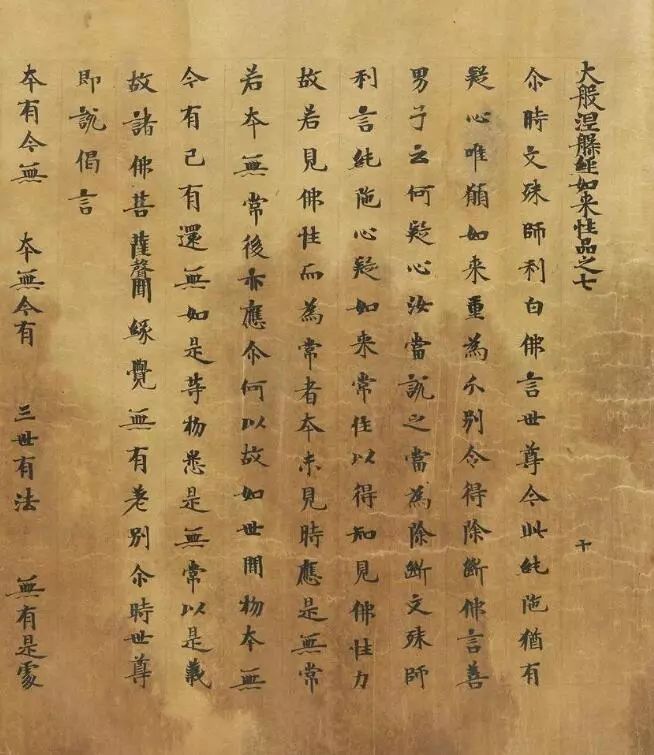 大般涅槃經如來性品之七 十
尒時文殊師利白佛言世尊今此純陁猶有
疑心唯願如来重為分別令得除斷佛言善
男子云何疑心汝當說之當為除斷文殊師
利言純陁心疑如来常住以得知見佛性力
故若見佛性而為常者本未見時應是無常
若本無常後亦應尒何以故如世間物本無
今有已有還無如是等物悉是無常以是義
故諸佛菩薩聲聞緣覺無有差別尒時世尊
即說偈言
本有今無 本無今有 三世有法 無有是處